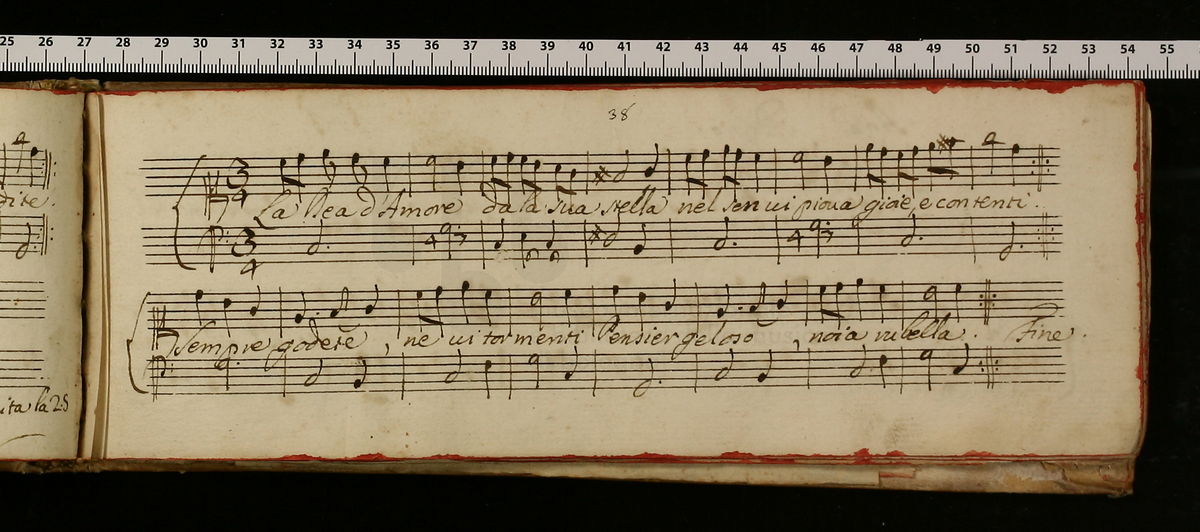 25 26 27 28 29 30 31 32 33 34 35 36 37 38 39 40 41 42 43 44 45 46 47 48 49 50 51 52 53 54 55
38
3 4
La Dea d'Amore da la sua stella nel sen ui pioua gioie, e contenti.
3 4
Sempre godete, ne ui tormenti Pensier geloso, noia rubella. Fine.
dite
ita la 2.S